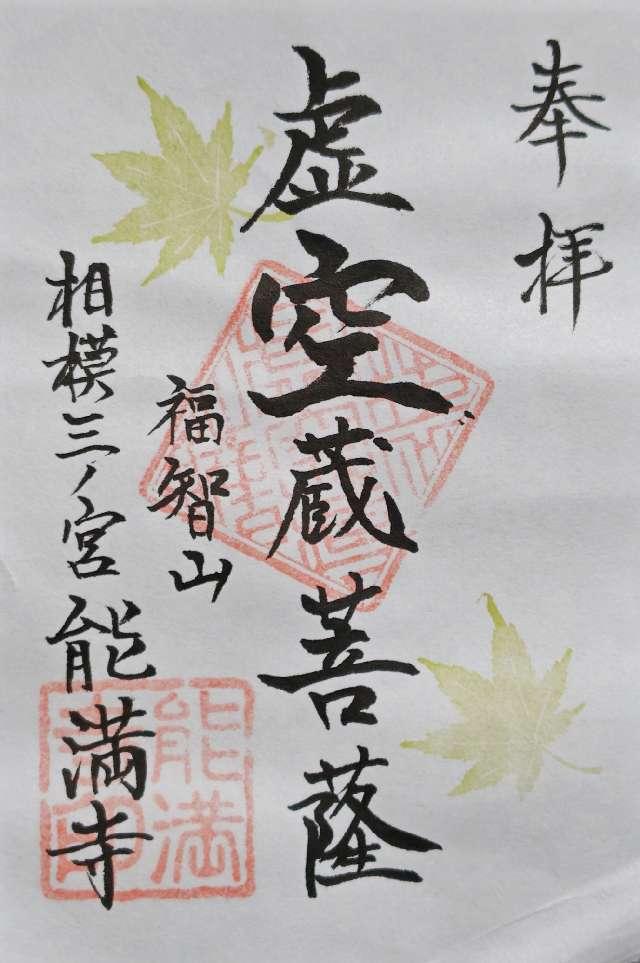 奉拝
虚空蔵菩薩
福智山
相模三ノ宮能満寺
能満寺印